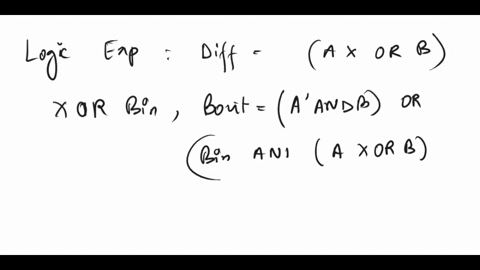 Logic Exp : Diff = (A X OR B)
XOR Bin, Bout = (A'ANDB) OR
(Bin ANI (A XOR B)